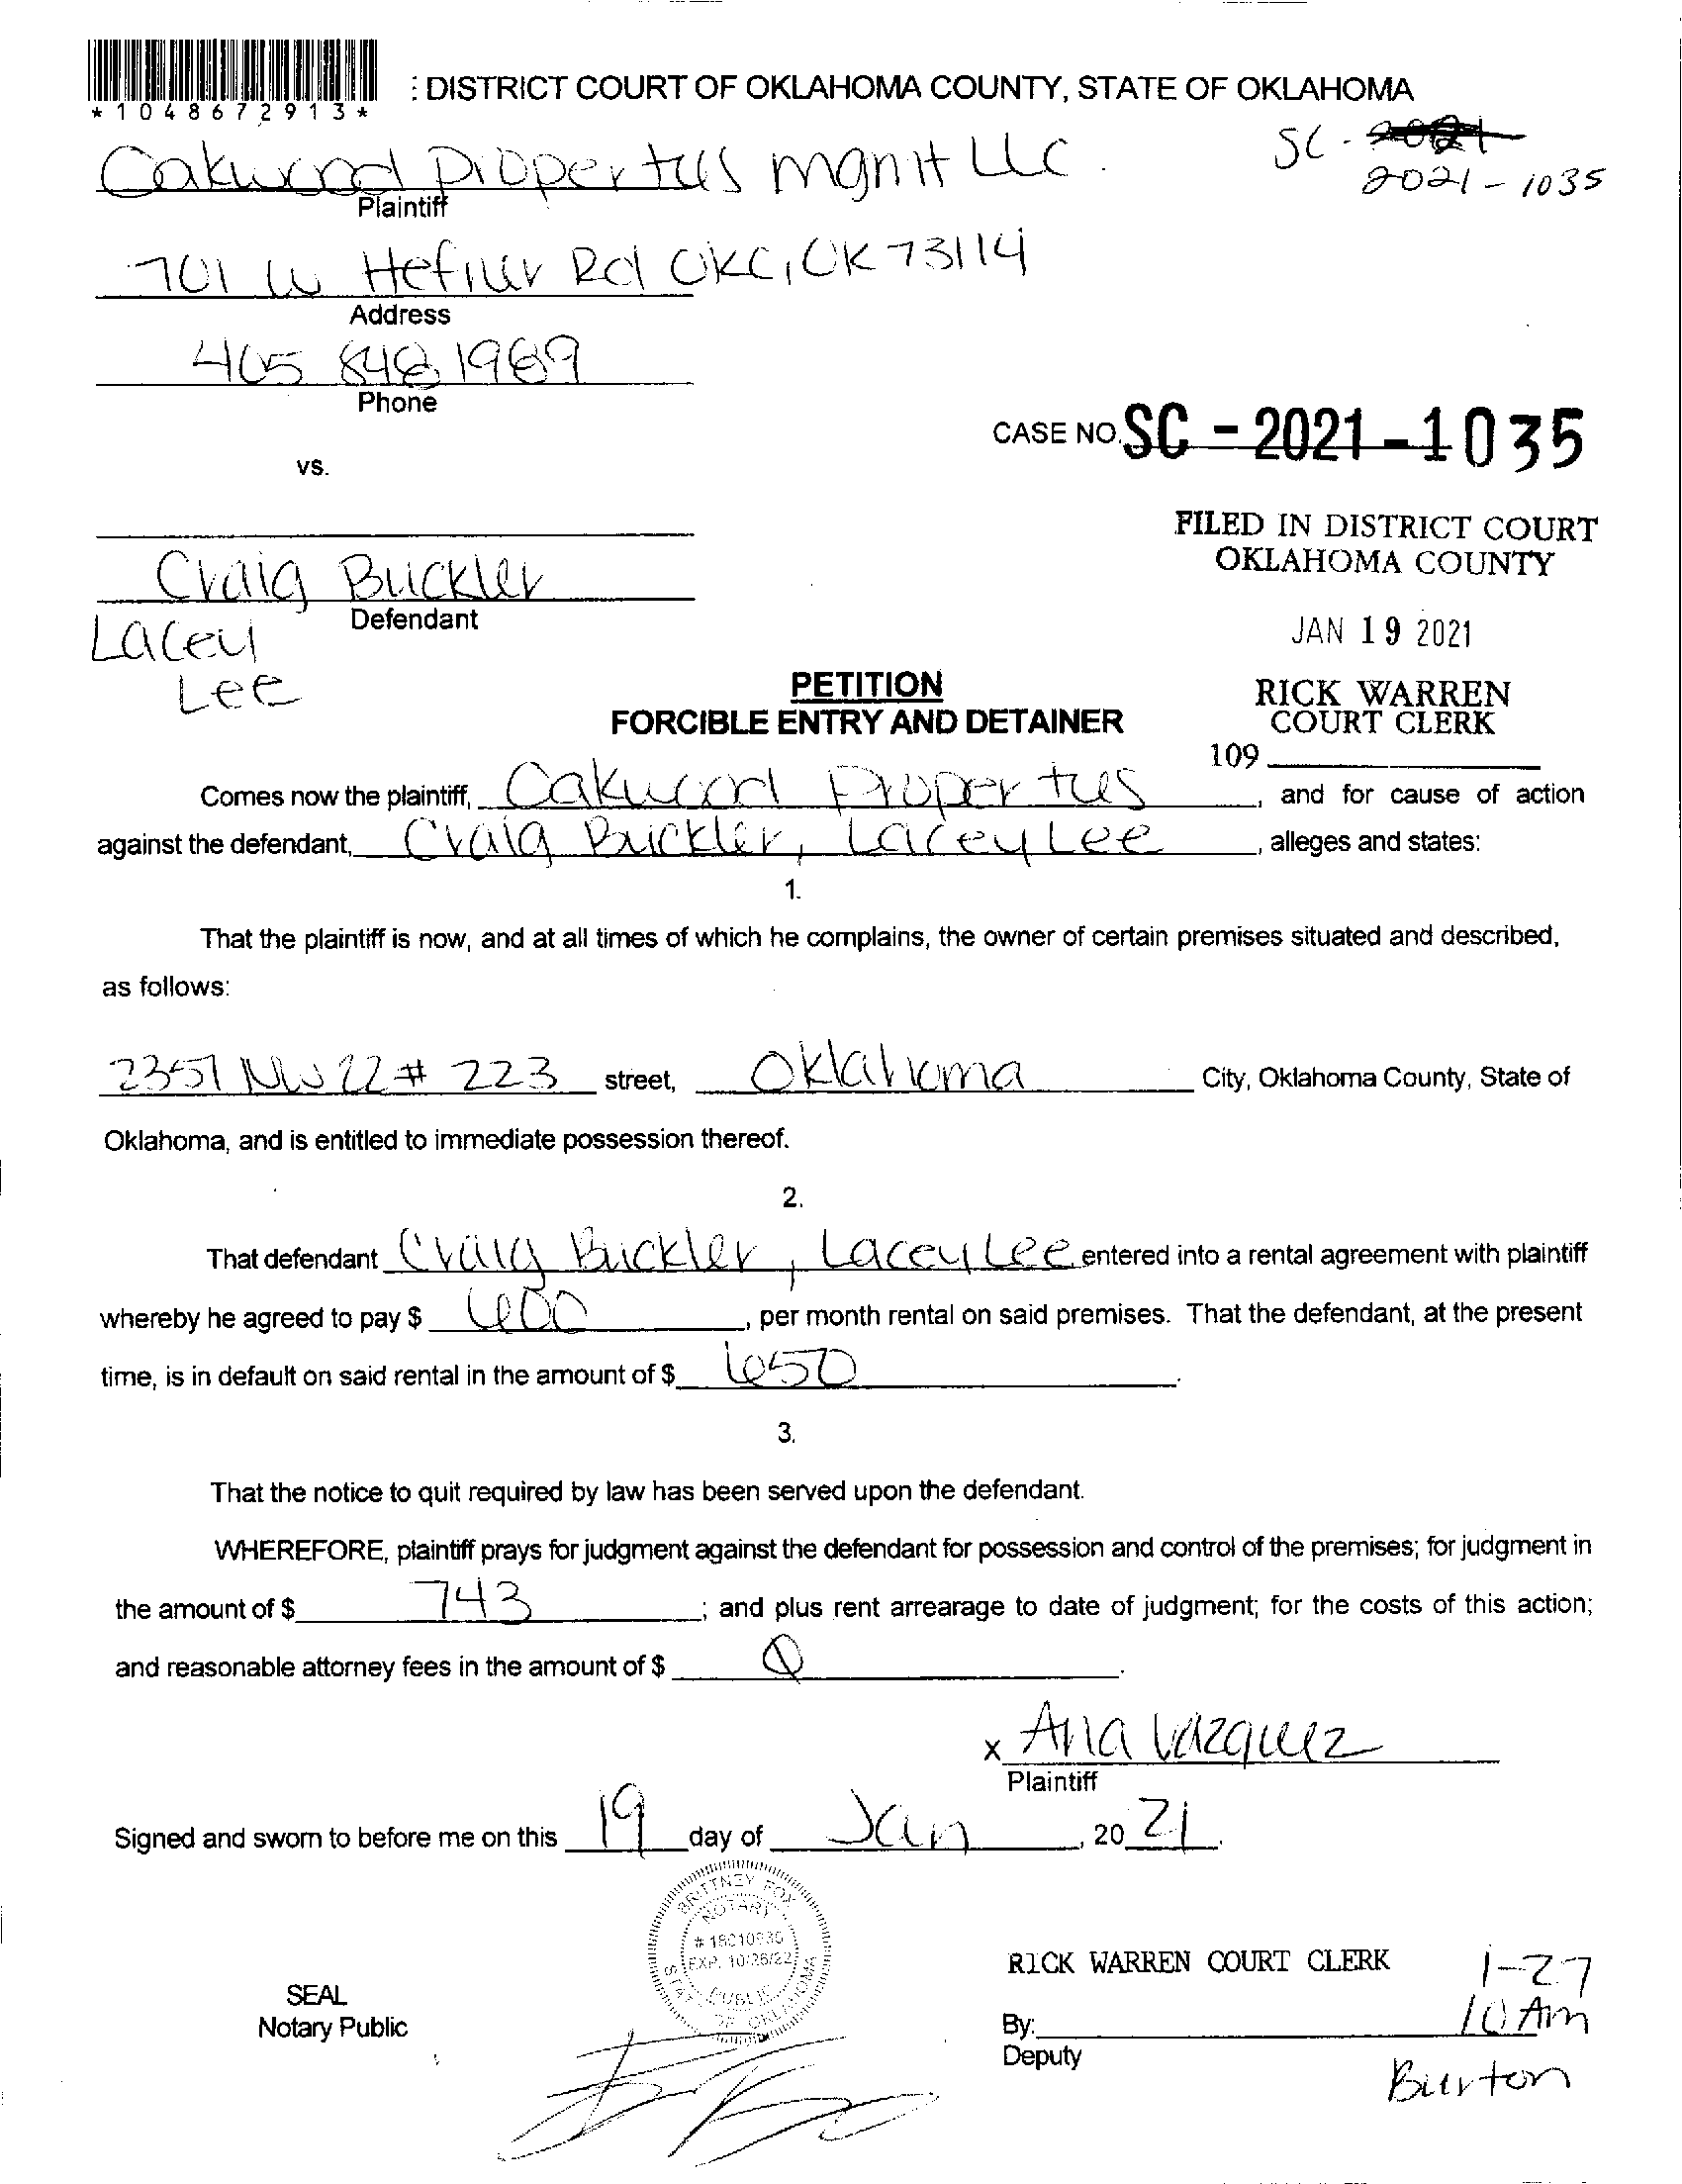 *1048672913*
: DISTRICT COURT OF OKLAHOMA COUNTY, STATE OF OKLAHOMA
SC - 2021
2021 - 1035
Oakwood Properties mgnt LLC.
Plaintiff
701 W Hefner Rd OKC, OK 73114
Address
405 848 1989
Phone
CASE NO. SC - 2021 - 1035
vs.
FILED IN DISTRICT COURT
OKLAHOMA COUNTY
Craig Buckler
Defendant
Lacey
Lee
JAN 19 2021
PETITION
FORCIBLE ENTRY AND DETAINER
RICK WARREN
COURT CLERK
109
Comes now the plaintiff, Oakwood Properties, and for cause of action
against the defendant, Craig Buckler, Lacey Lee, alleges and states:
1.
That the plaintiff is now, and at all times of which he complains, the owner of certain premises situated and described,
as follows:
2351 NW 22 # 223 street, Oklahoma City, Oklahoma County, State of
Oklahoma, and is entitled to immediate possession thereof.
2.
That defendant Craig Buckler, Lacey Lee entered into a rental agreement with plaintiff
whereby he agreed to pay $ 600, per month rental on said premises. That the defendant, at the present
time, is in default on said rental in the amount of $ 650.
3.
That the notice to quit required by law has been served upon the defendant.
WHEREFORE, plaintiff prays for judgment against the defendant for possession and control of the premises; for judgment in
the amount of $ 743; and plus rent arrearage to date of judgment; for the costs of this action;
and reasonable attorney fees in the amount of $ 0.
x Ana Vazquez
Plaintiff
Signed and sworn to before me on this 19 day of Jan, 20 21.
BRITTNEY FOX
NOTARY
EXP. 10/26/22
PUBLIC
STATE OF OKLAHOMA
SEAL
Notary Public
RICK WARREN COURT CLERK
1-27
10 Am
By:
Deputy
Burton